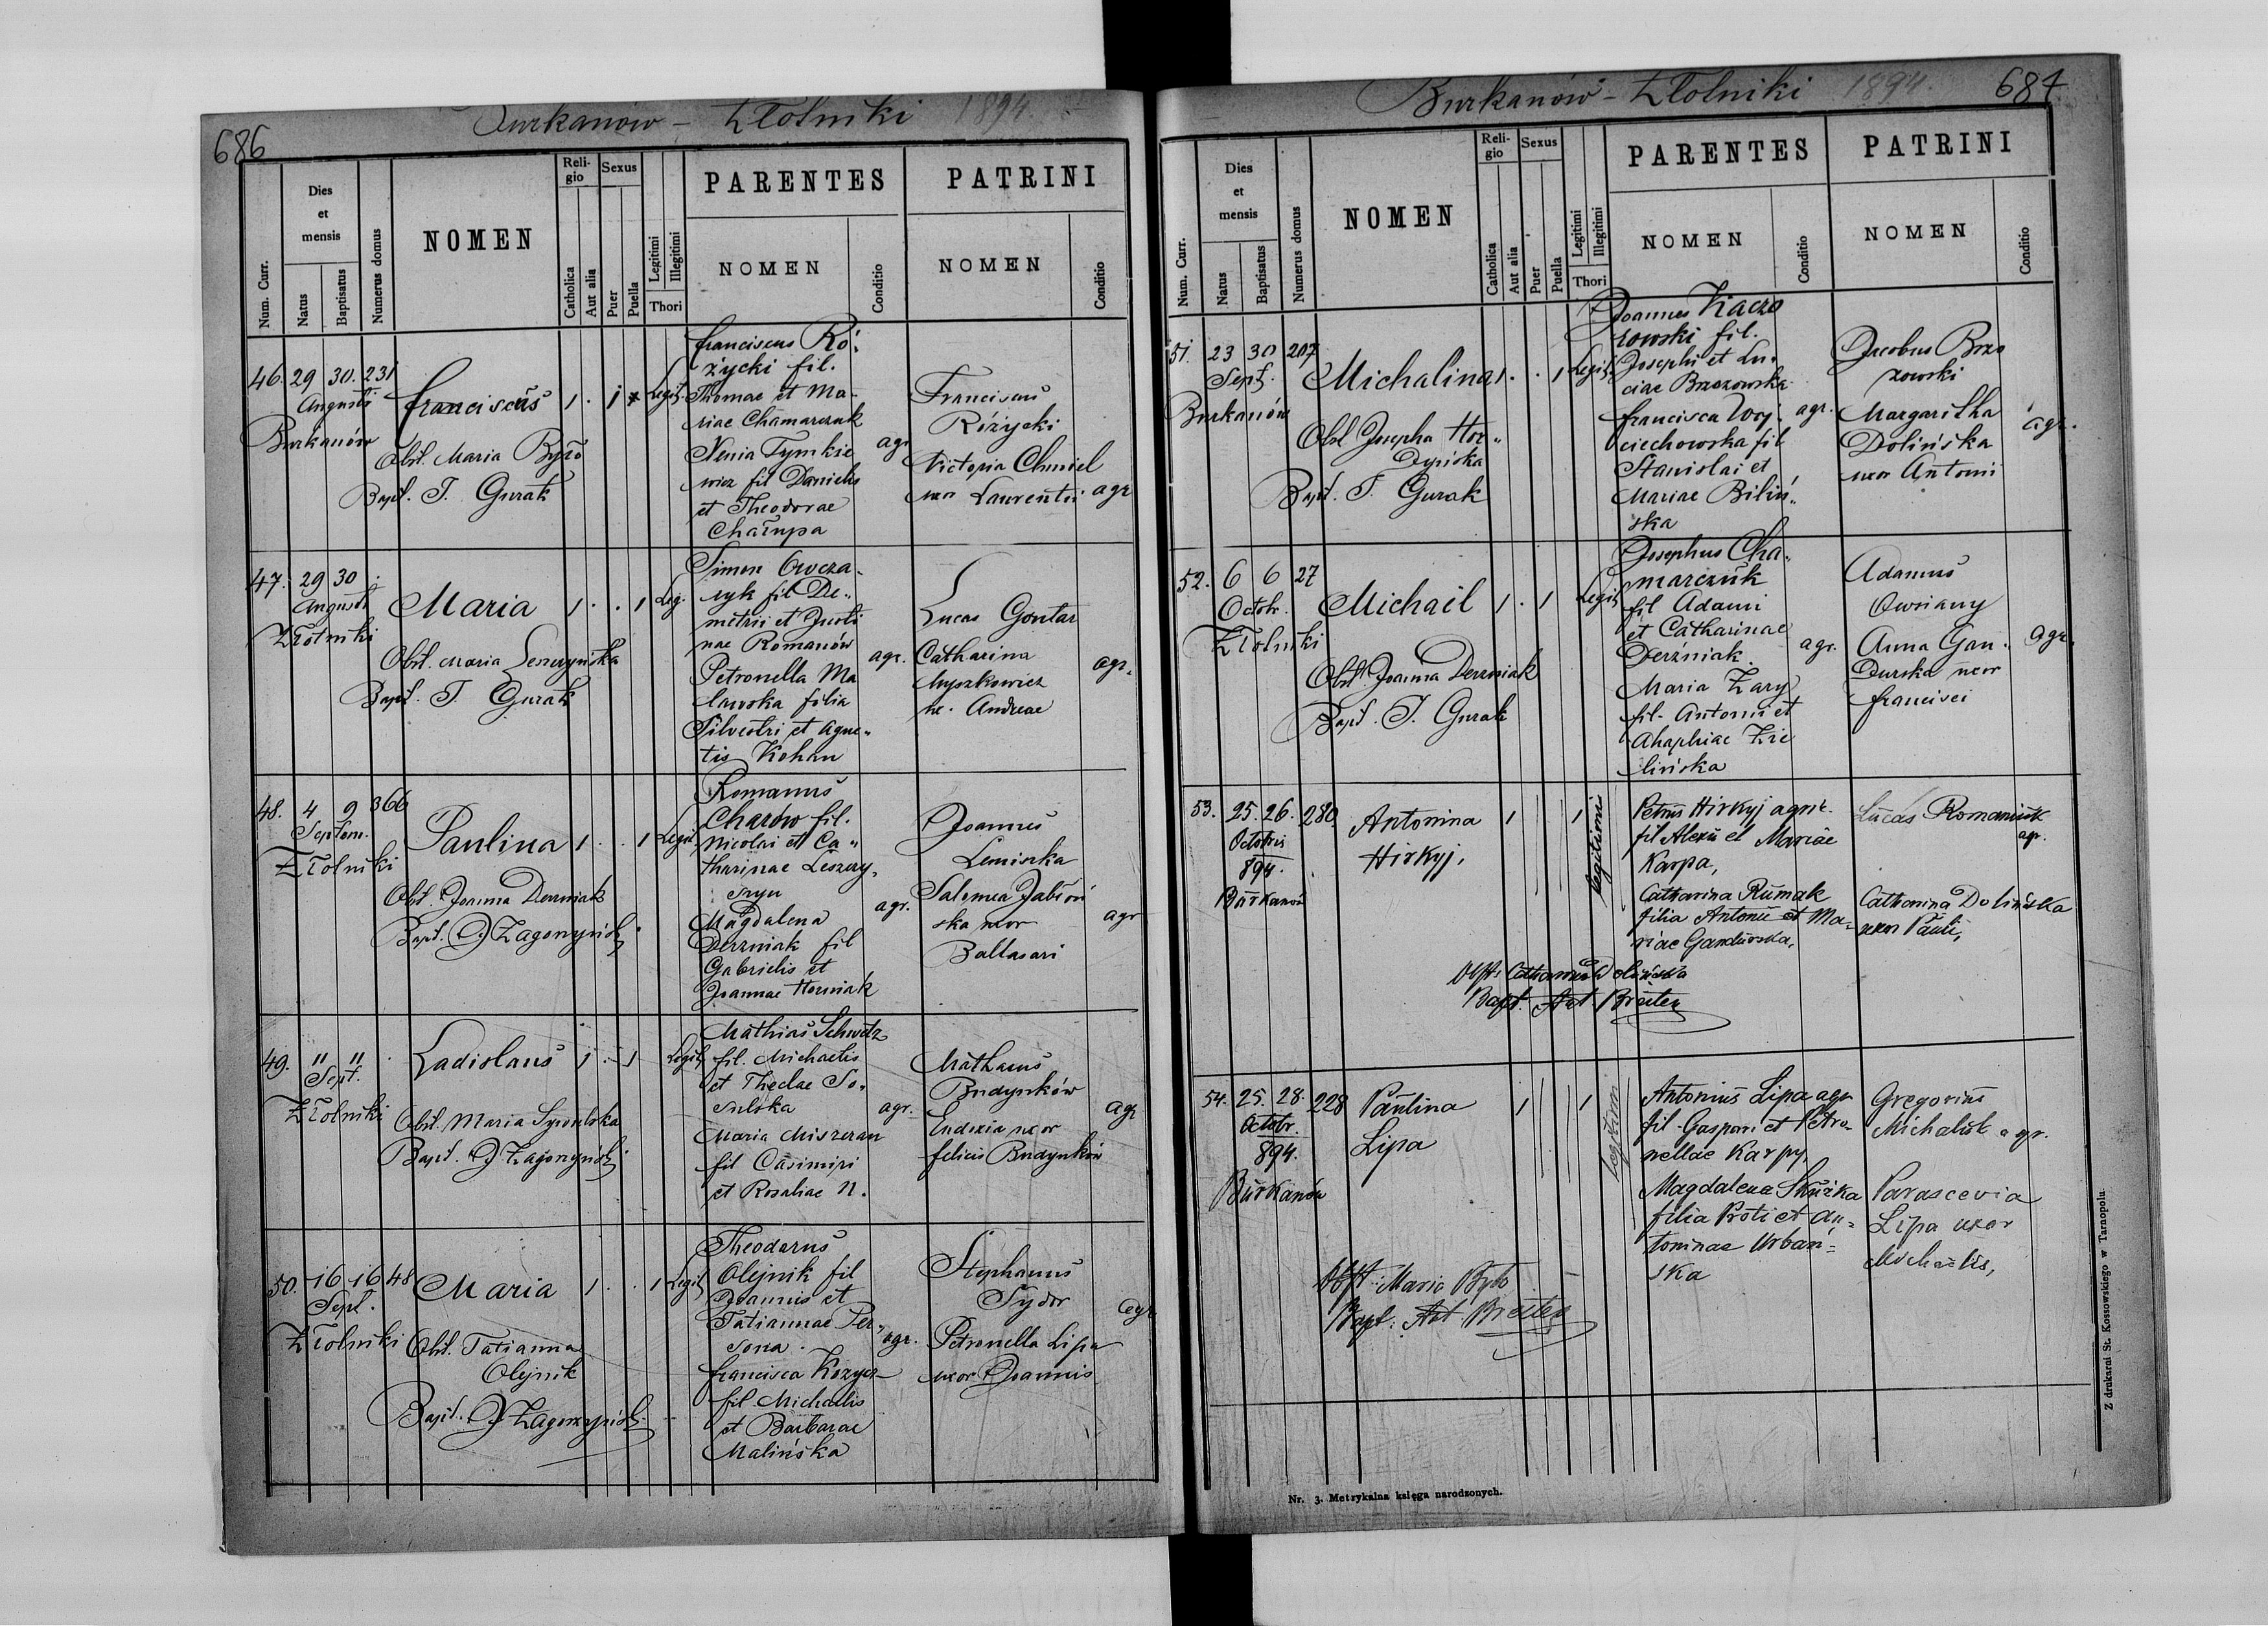 686
Burkanów - Złotniki 1894.
Num. Curr.
Dies
et
mensis
Natus
Baptisatus
Numerus domus
NOMEN
Reli-
gio
Catholica
Aut alia
Sexus
Puer
Puella
Legitimi
Illegitimi
Thori
PARENTES
NOMEN
Conditio
PATRINI
NOMEN
Conditio
46. 29 30. 231
Augusti
Burkanów
Franciscus 1 . 1 Legit.
Obst. Maria Było
Bapt. T. Gurak
Franciscus Ró-
życki fil.
Thomae et Ma-
riae Chamarczuk
Xenia Tymkie
wicz fil Danielis
et Theodorae
Chałupa
agr
Franciscus
Różycki
Victoria Chmiel
uxor Laurentii agr
47. 29 30 .
Augusti
Złotniki
Maria 1 . . 1 Leg.
Obst. Maria Leszczyńska
Bapt. T. Gurak
Simon Owcza-
ryk fil De-
metrii et Justi
nae Romanów
Petronella Ma
lawska filia
Silvestri et Agne-
tis Kohan
agr.
Lucas Gontar
Catharina
Myszkowicz
ux. Andreae
agr.
48. 4 9 366
Septem.
Złotniki
Paulina 1 . . 1 Legit.
Obst. Joanna Derzniak
Bapt.
Romanus
Charów fil.
Nicolai et Ca-
tharinae Leszczy-
szyn
Magdalena
Derzniak fil
Gabrielis et
Joannae Horniak
agr.
Joannes
Lemiszka
Salomea Jabłoń
ska uxor
Baltasari
agr
49. " "
Sept.
Złotniki
Ladislaus 1 . 1 Legit
Obst. Maria
Bapt.
Mathias Schwetz
fil. Michaelis
et Theclae So-
sulska
Maria Miszeran
fil Casimiri
et Rosaliae N.
agr.
Mathaeus
Budynków
Eudoxia uxor
felicis Budynków
agr
50. 16 16 48
Sept.
Złotniki
Maria 1 . . 1 Legit
Obst. Tatianna
Olejnik
Bapt.
Theodorus
Olejnik fil
Joannis et
Tatiannae Per-
sona.
Francisca Kozycz
fil Michaelis
et Barbarae
Malińska
agr.
Stephanus
Sydor
Petronella Lipa
uxor Joannis
agr
687
Burkanów - Złotniki 1894.
Num. Curr.
Dies
et
mensis
Natus
Baptisatus
Numerus domus
NOMEN
Reli-
gio
Catholica
Aut alia
Sexus
Puer
Puella
Legitimi
Illegitimi
Thori
PARENTES
NOMEN
Conditio
PATRINI
NOMEN
Conditio
51. 23 30 207
Sept.
Burkanów
Michalina 1 . . 1 Legit
Obst Josepha Hor-
dyńska
Bapt. T. Gurak
Joannes Kaczo
rowski fil.
Josephi et Lu-
ciae Brzozowska
Francisca Woj-
ciechowska fil
Stanislai et
Mariae Biliń-
ska
agr.
Jacobus Brzo
zowski
Margaritha
Dolińska
uxor Antoni
agr.
52. 6 6 27
Octobr.
Złotniki
Michail 1 . 1 Legit
Obst Joanna Derzniak
Bapt. T. Gurak
Josephus Cha-
marczuk
fil Adami
et Catharinae
Derźniak.
Maria Zary
fil. Antoni et
Ahaphiae Zie
lińska
agr.
Adamus
Owsiany
Anna Gan-
durska uxor
Francisci
agr.
53. 25. 26. 280,
Octobris
894.
Burkanów
Antonina
Hirkyj,
1 1 legitimi
Petrus Hirkyj agric.
fil Alexii et Mariae
Karpa,
Catharina Rumak
filia Antonii et Ma-
riae Gandurska,
Lucas Romaniuk
agr.
Catharina Dolińska
uxor Pauli,
Obst: Catharina Dolińska
Bapt. Ant. Breiter
54. 25. 28. 228
Octobr.
894.
Burkanów
Paulina
Lipa
1 1 legitimi
Antonius Lipa agr
fil. Gaspari et Petro-
nellae Karpy,
Magdalena Skużka
filia Proti et An-
toninae Urbań-
ska
Gregorius
Michaluk agr.
Parascevia
Lipa uxor
Michaelis,
Obst: Maria Było
Bapt: Ant. Breiter
Nr. 3. Metrykalna księga narodzonych.
Z drukarni St. Kossowskiego w Tarnopolu.